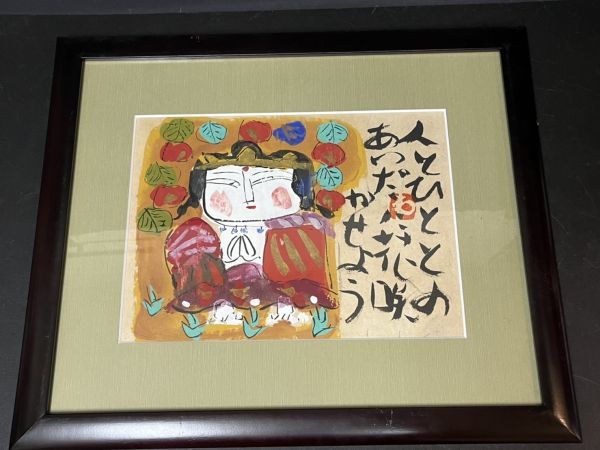 人とひととの
あいだにお花咲
かせよう